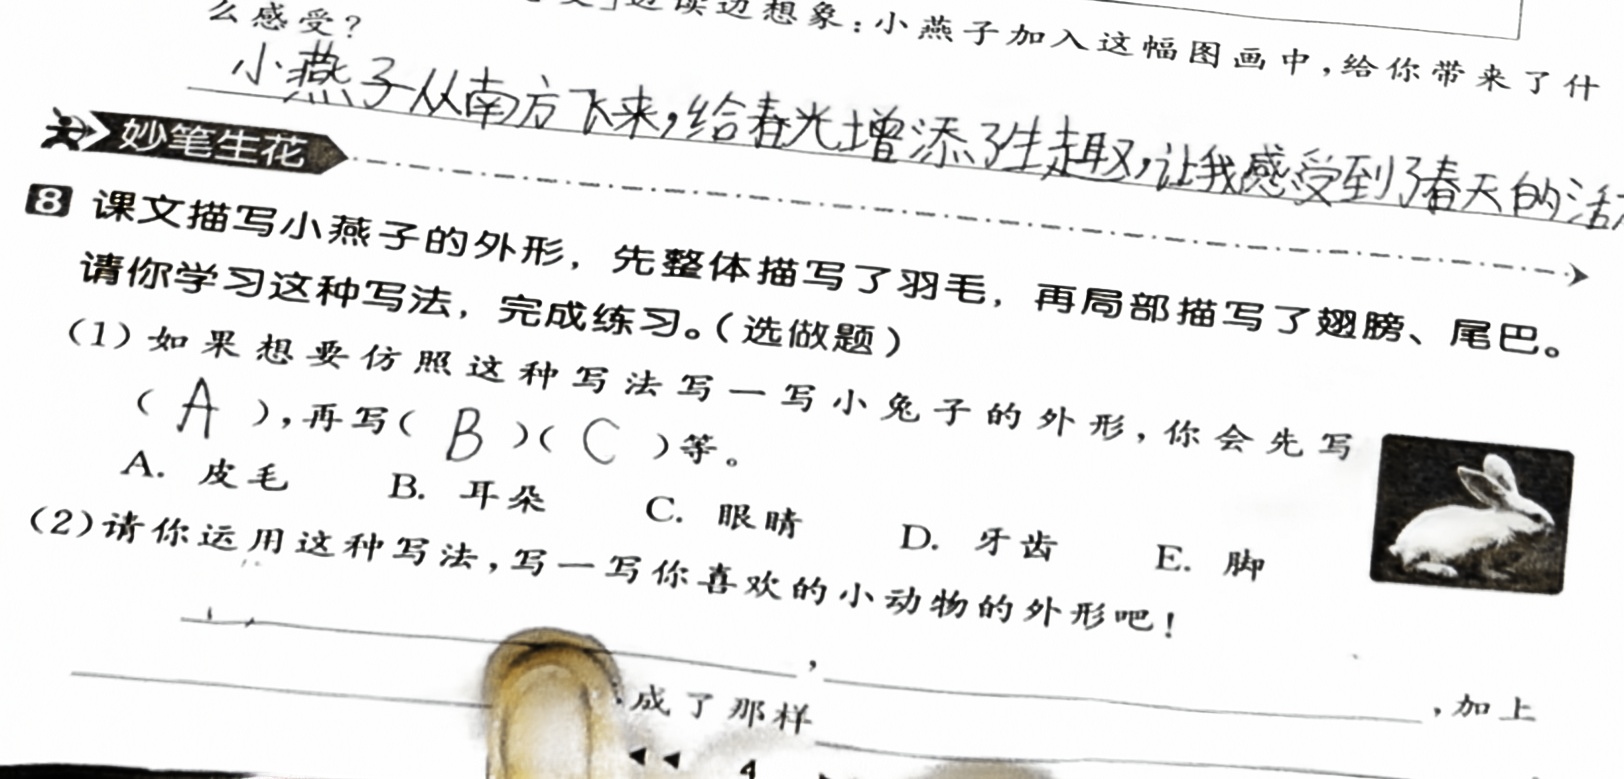 边读边想象:小燕子加入这幅图画中,给你带来了什
么感受?
小燕子从南方飞来,给春光增添了生趣,让我感受到了春天的活
妙笔生花
8 课文描写小燕子的外形,先整体描写了羽毛,再局部描写了翅膀、尾巴。
请你学习这种写法,完成练习。(选做题)
(1)如果想要仿照这种写法写一写小兔子的外形,你会先写
( A ),再写( B )( C )等。
A. 皮毛 B. 耳朵 C. 眼睛 D. 牙齿 E. 脚
(2)请你运用这种写法,写一写你喜欢的小动物的外形吧!
, ,加上
成了那样
4